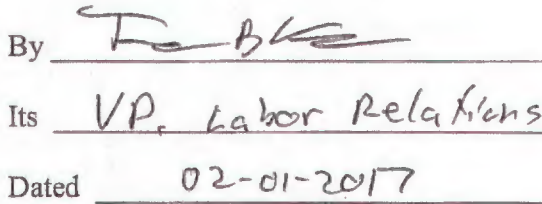 By
Its VP, Labor Relations
Dated 02-01-2017